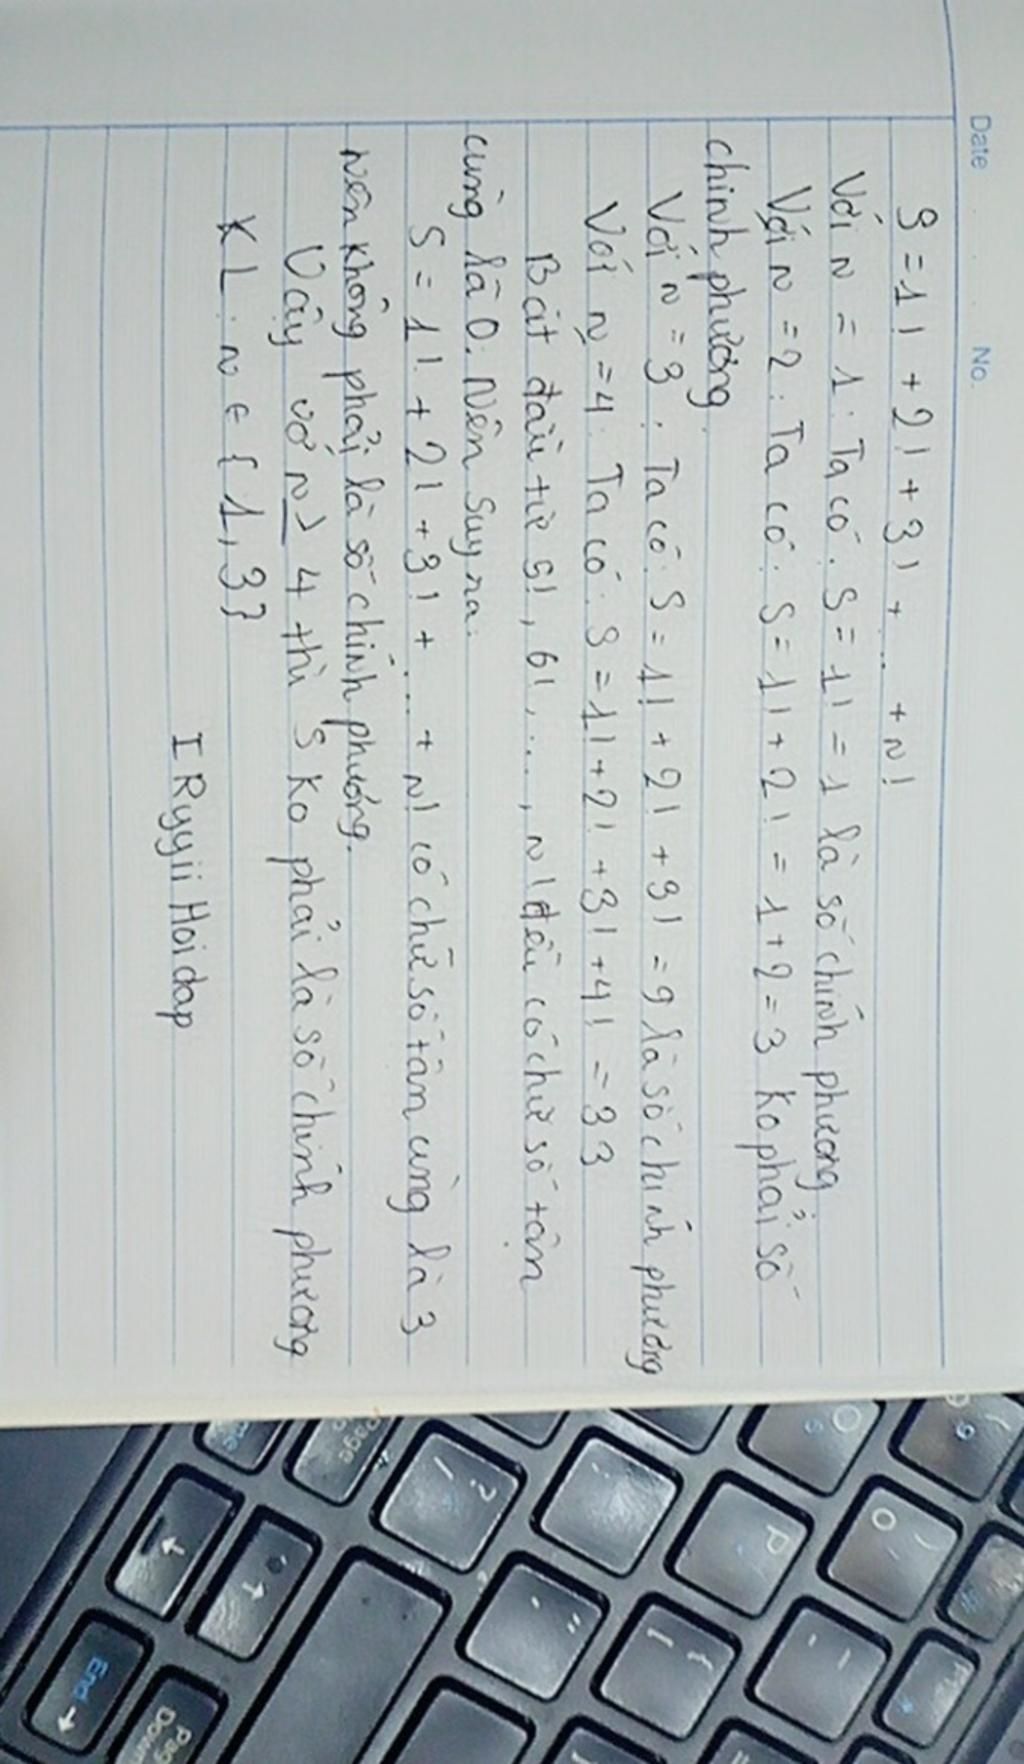 Date No.
S = 1! + 2! + 3! + ... + n!
Với n = 1: Ta có: S = 1! = 1 là số chính phương
Với n = 2: Ta có: S = 1! + 2! = 1 + 2 = 3 ko phải số
chính phương
Với n = 3: Ta có: S = 1! + 2! + 3! = 9 là số chính phương
Với n = 4: Ta có: S = 1! + 2! + 3! + 4! = 33
Bắt đầu từ 5!, 6!, ..., n! đều có chữ số tận
cùng là 0. Nên suy ra:
S = 1! + 2! + 3! + ... + n! có chữ số tân cùng là 3
nên không phải là số chính phương.
Vậy vớ n ≥ 4 thì S ko phải là số chính phương
KL: n ∈ {1, 3}
I Ryyii Hoidap
End